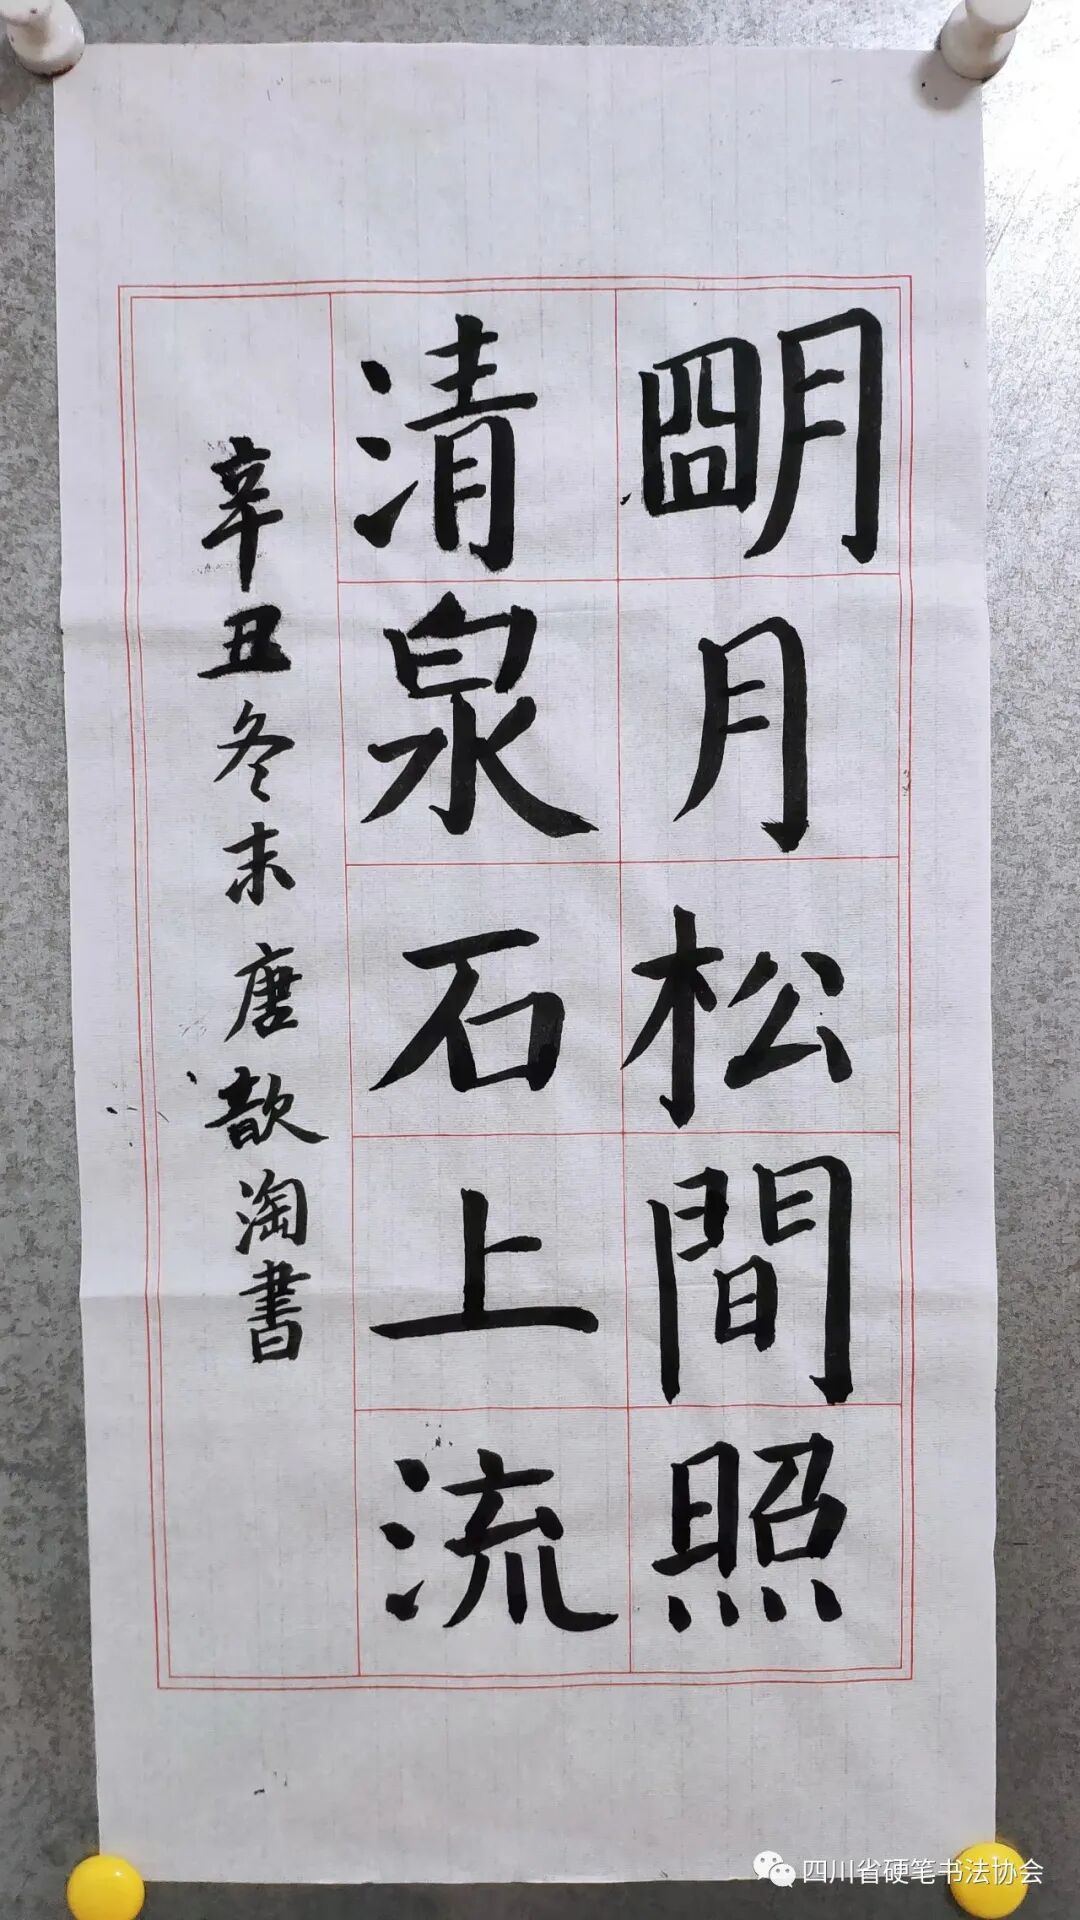 朙月松間照
清泉石上流
辛丑冬末唐歆淘書
四川省硬笔书法协会